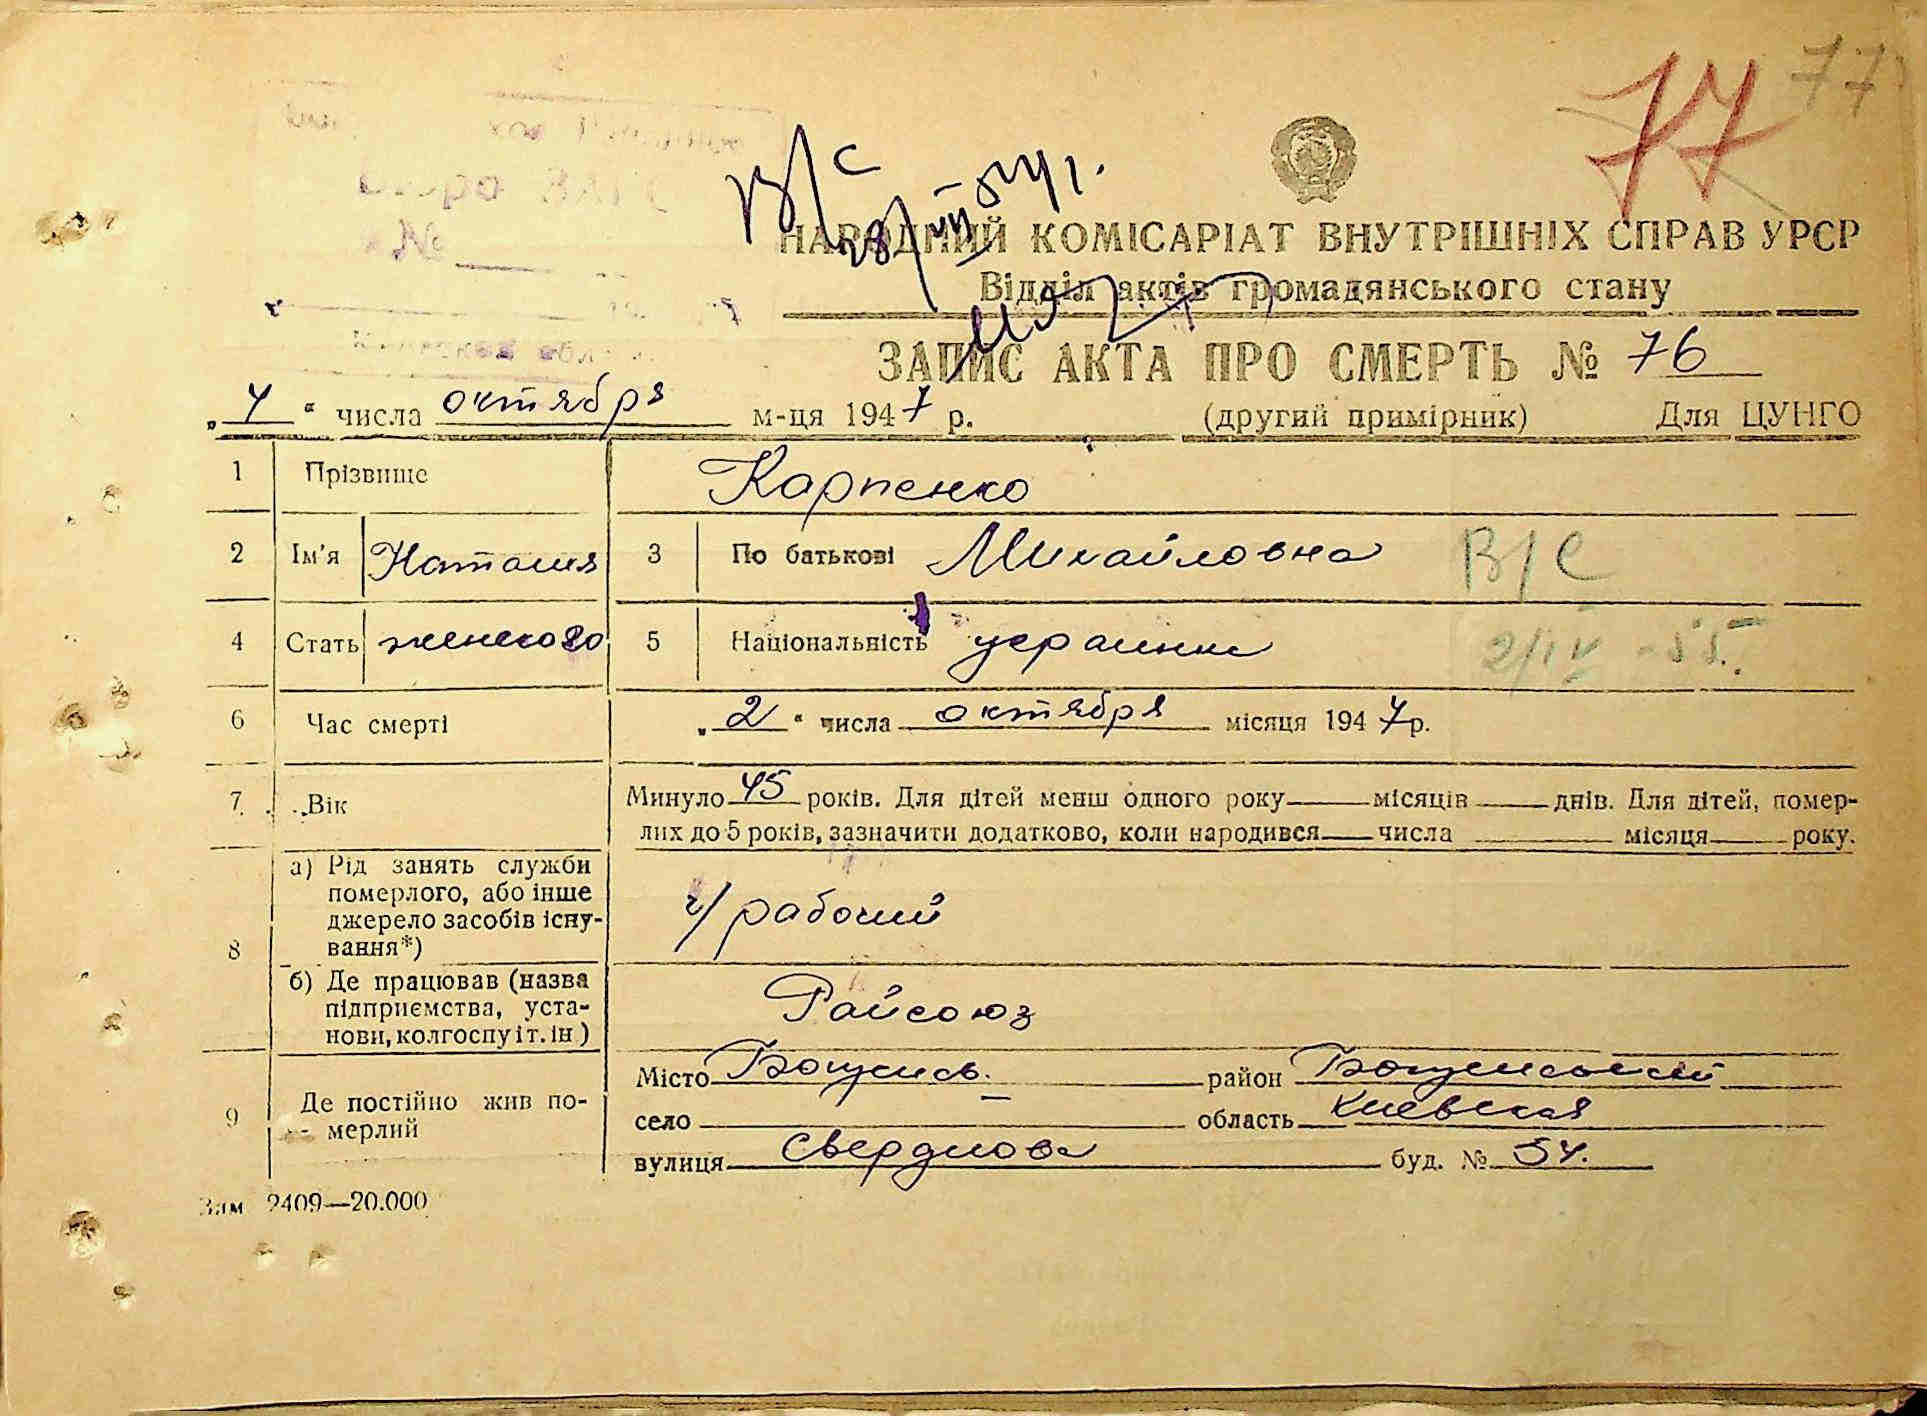 77
77
В/С
НАРОДНИЙ КОМІСАРІАТ ВНУТРІШНІХ СПРАВ УРСР
Відділ актів громадянського стану
ЗАПИС АКТА ПРО СМЕРТЬ № 76
„ 4 “ числа октября м-ця 1947 р. (другий примірник) Для ЦУНГО
1 Прізвище Карпенко
2 Ім'я Наталия 3 По батькові Михайловна В/С
4 Стать женского 5 Національність украинка 2/IV - 55.
6 Час смерті „ 2 “ числа октября місяця 1947 р.
7. Вік Минуло 45 років. Для дітей менш одного року місяців днів. Для дітей, помер-
лих до 5 років, зазначити додатково, коли народився числа місяця року.
8 а) Рід занять служби
померлого, або інше
джерело засобів існу-
вання*) ч/рабочий
б) Де працював (назва
підприємства, уста-
нови, колгоспу і т. ін ) Райсоюз
9 Де постійно жив по-
мерлий
Місто район
село область Киевская
вулиця Свердлова буд. № 54.
Зам 2409—20.000